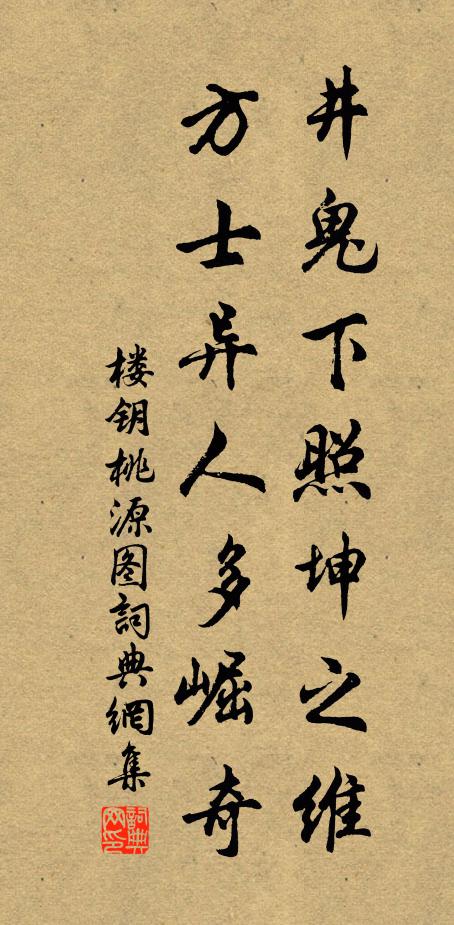 井鬼下照坤之维
方士异人多崛奇
楼钥桃源图詞典網集
詞典网印